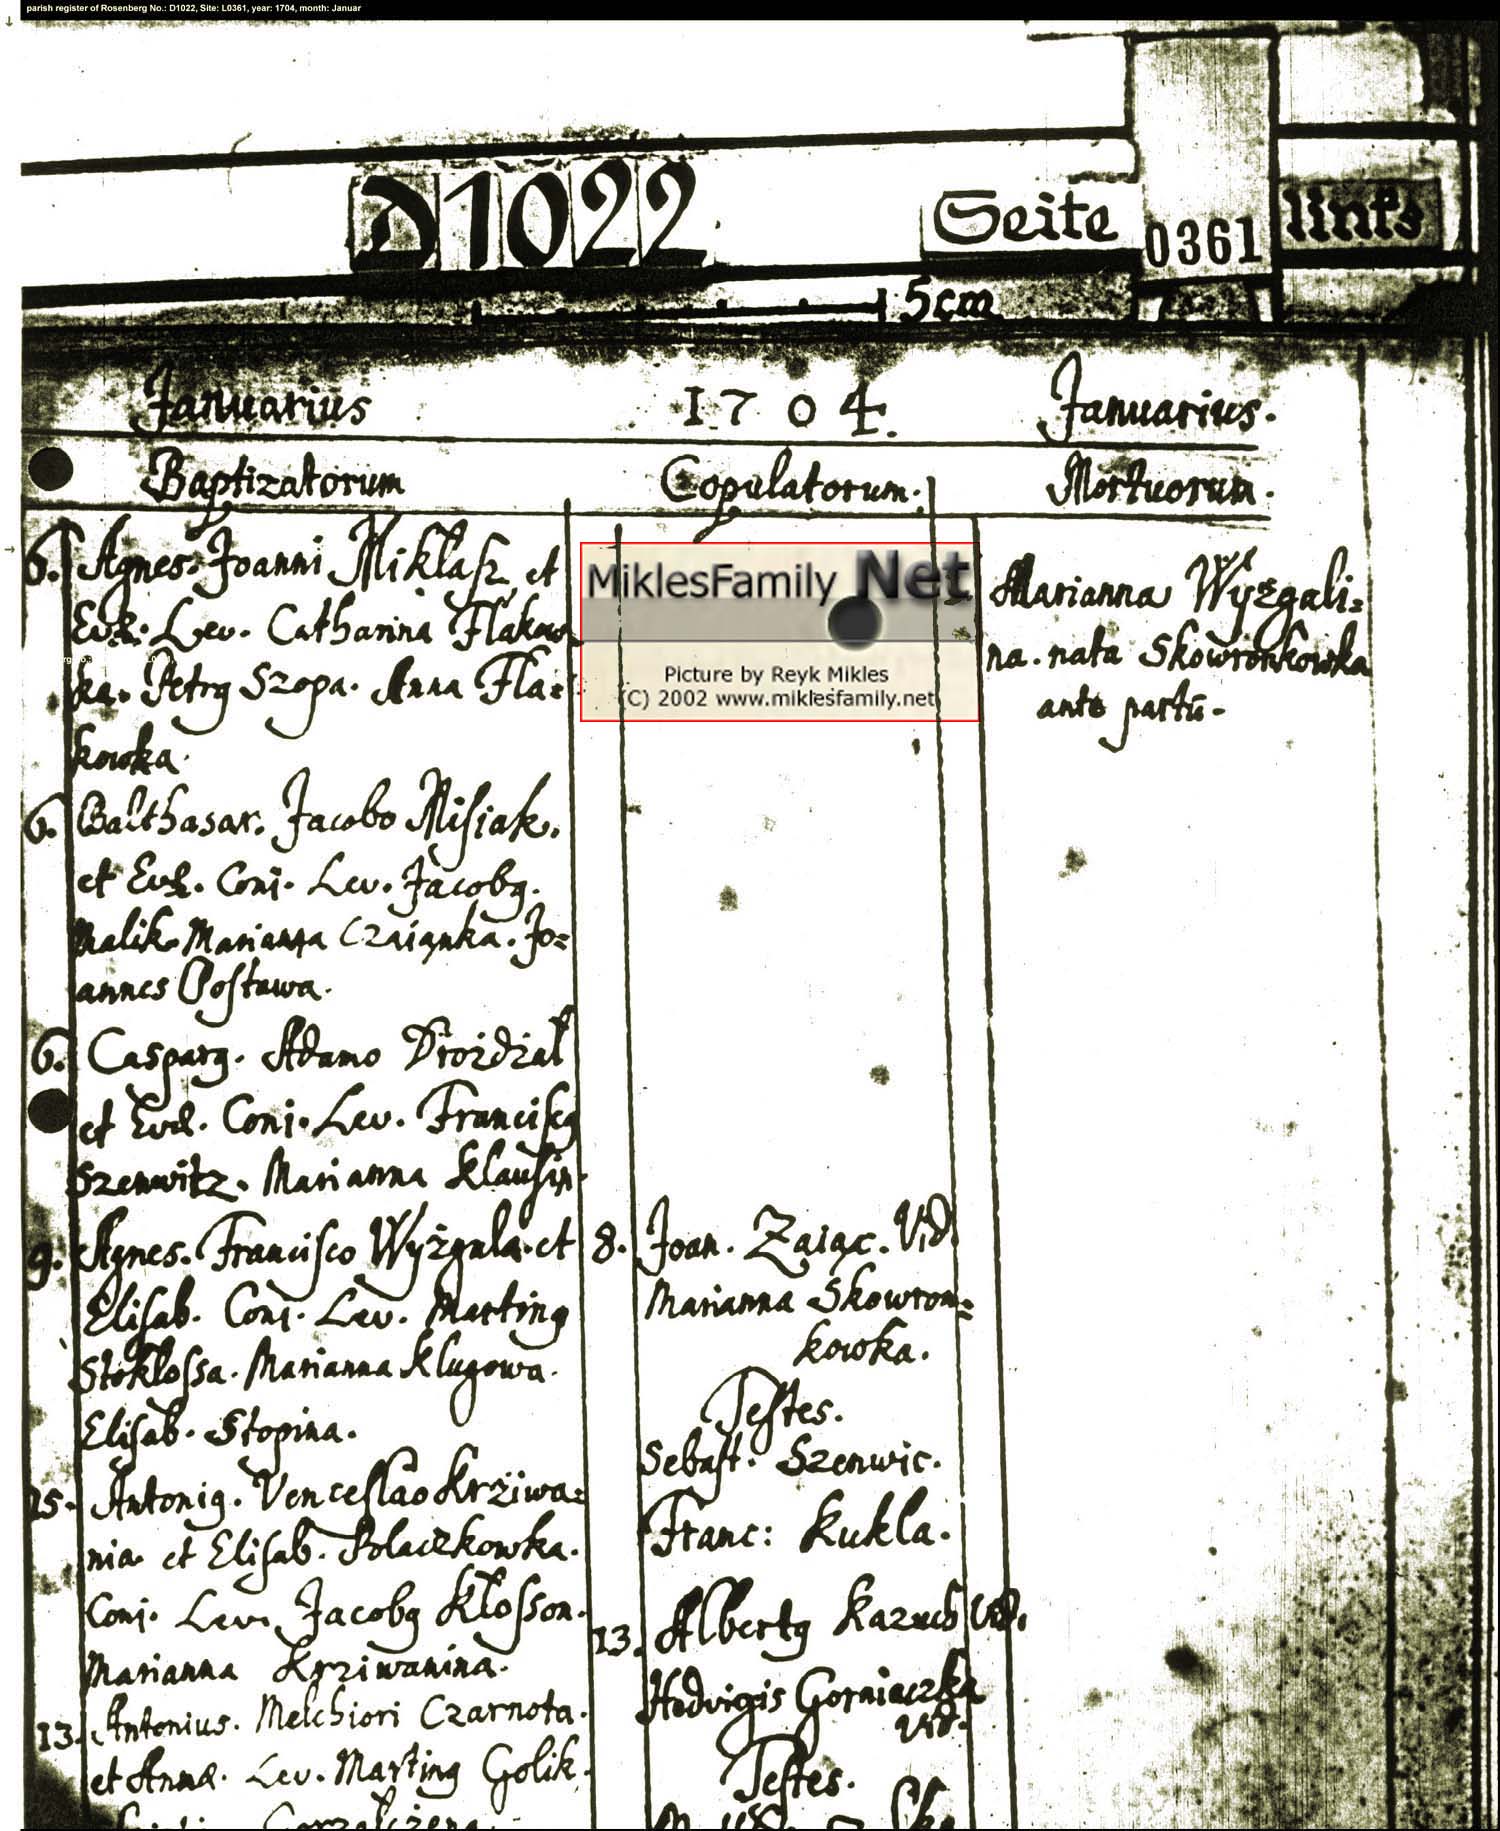 parish register of Rosenberg No.: D1022, Site: L0361, year: 1704, month: Januar
D1022
Seite 0361 links
5cm
Januarius 1704. Januarius.
Baptizatorum Copulatorum. Mortuorum.
6. Agnes. Joanni Miklasz et
Evæ. Lev. Catharina Flakow
ka. Petrg Szopa. Anna Fla=
kowka.
6. Balthasar. Jacobo Misiak.
et Evæ. Coni. Lev. Jacobg.
Malik. Marianna Czaianka. Jo=
annes Postawa.
6. Caspar9. Adamo Droidzal
et Evæ. Coni. Lev. Francisc9
Szenwitz. Marianna Klausin.
9. Agnes. Francisco Wyżgala. et
Elisab. Coni. Lev. Martin9
Stoklossa. Marianna Klugowa.
Elisab. Stopina.
15. Antoni9. Venceslao Krziwa=
nia et Elisab. Polaczkowka.
Coni. Lev. Jacob9 Klosson.
Marianna Krziwanina.
13. Antonius. Melchiori Czarnota.
et Anna. Lev. Martin9 Golik.
MiklesFamily Net
Picture by Reyk Mikles
(C) 2002 www.miklesfamily.net
8. Joan. Zaiac. Vid.
Marianna Skowron=
kowka.
Testes.
Sebast. Szenwic.
Franc: Kukla.
13. Albert9 Kazuch Vid.
Hedvigis Gorniaczka
Vid.
Testes.
Marianna Wyżgali=
na. nata Skowronkowka
ante partū.